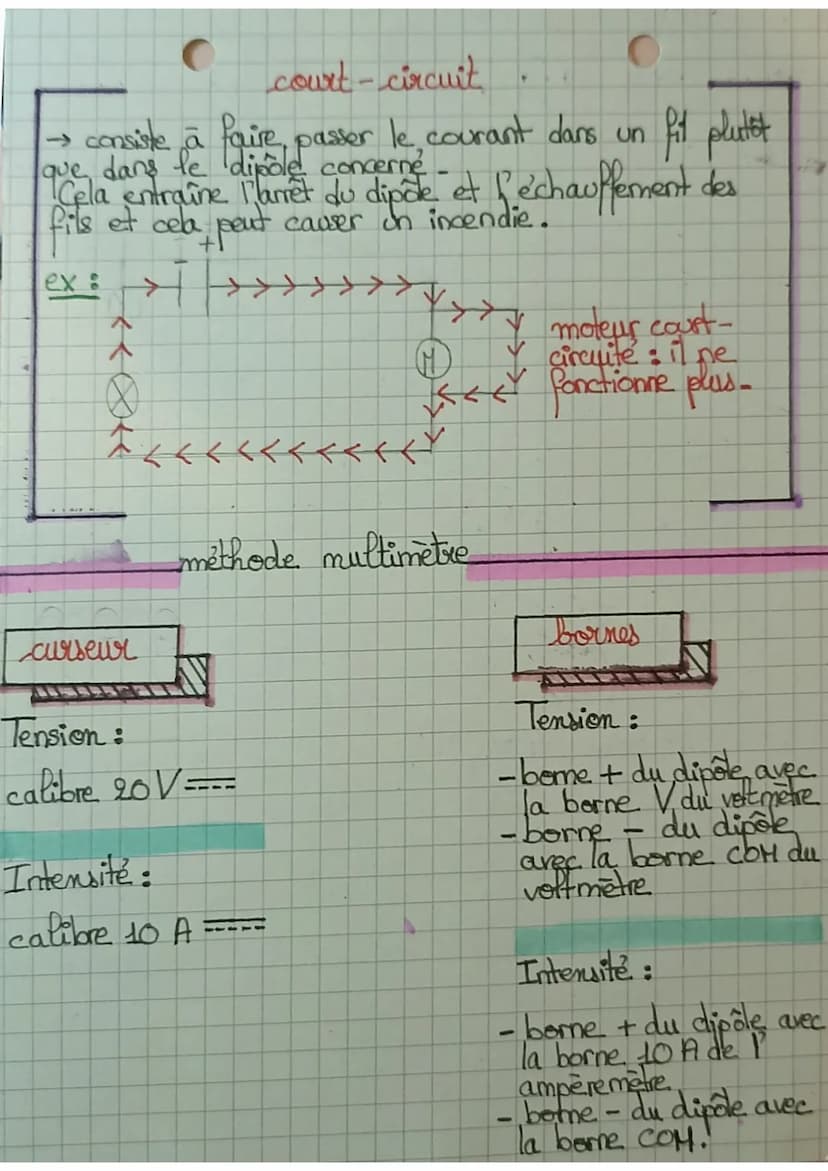 court-circuit
→ consiste à faire passer le courant dans un fil plutôt
que dans le dipôle concerné -
Cela entraîne l'arrêt du dipôle et l'échauffement des
fils et cela peut causer un incendie.
ex :
- +
M
moteur court-
circuité : il ne
fonctionne plus -
méthode multimètre
curseur
Tension :
calibre 20 V
Intensité :
calibre 10 A
bornes
Tension :
- borne + du dipôle avec
la borne V du voltmètre
- borne - du dipôle
avec la borne COM du
voltmètre
Intensité :
- borne + du dipôle avec
la borne 10 A de l'
ampèremètre
- borne - du dipôle avec
la borne COM.